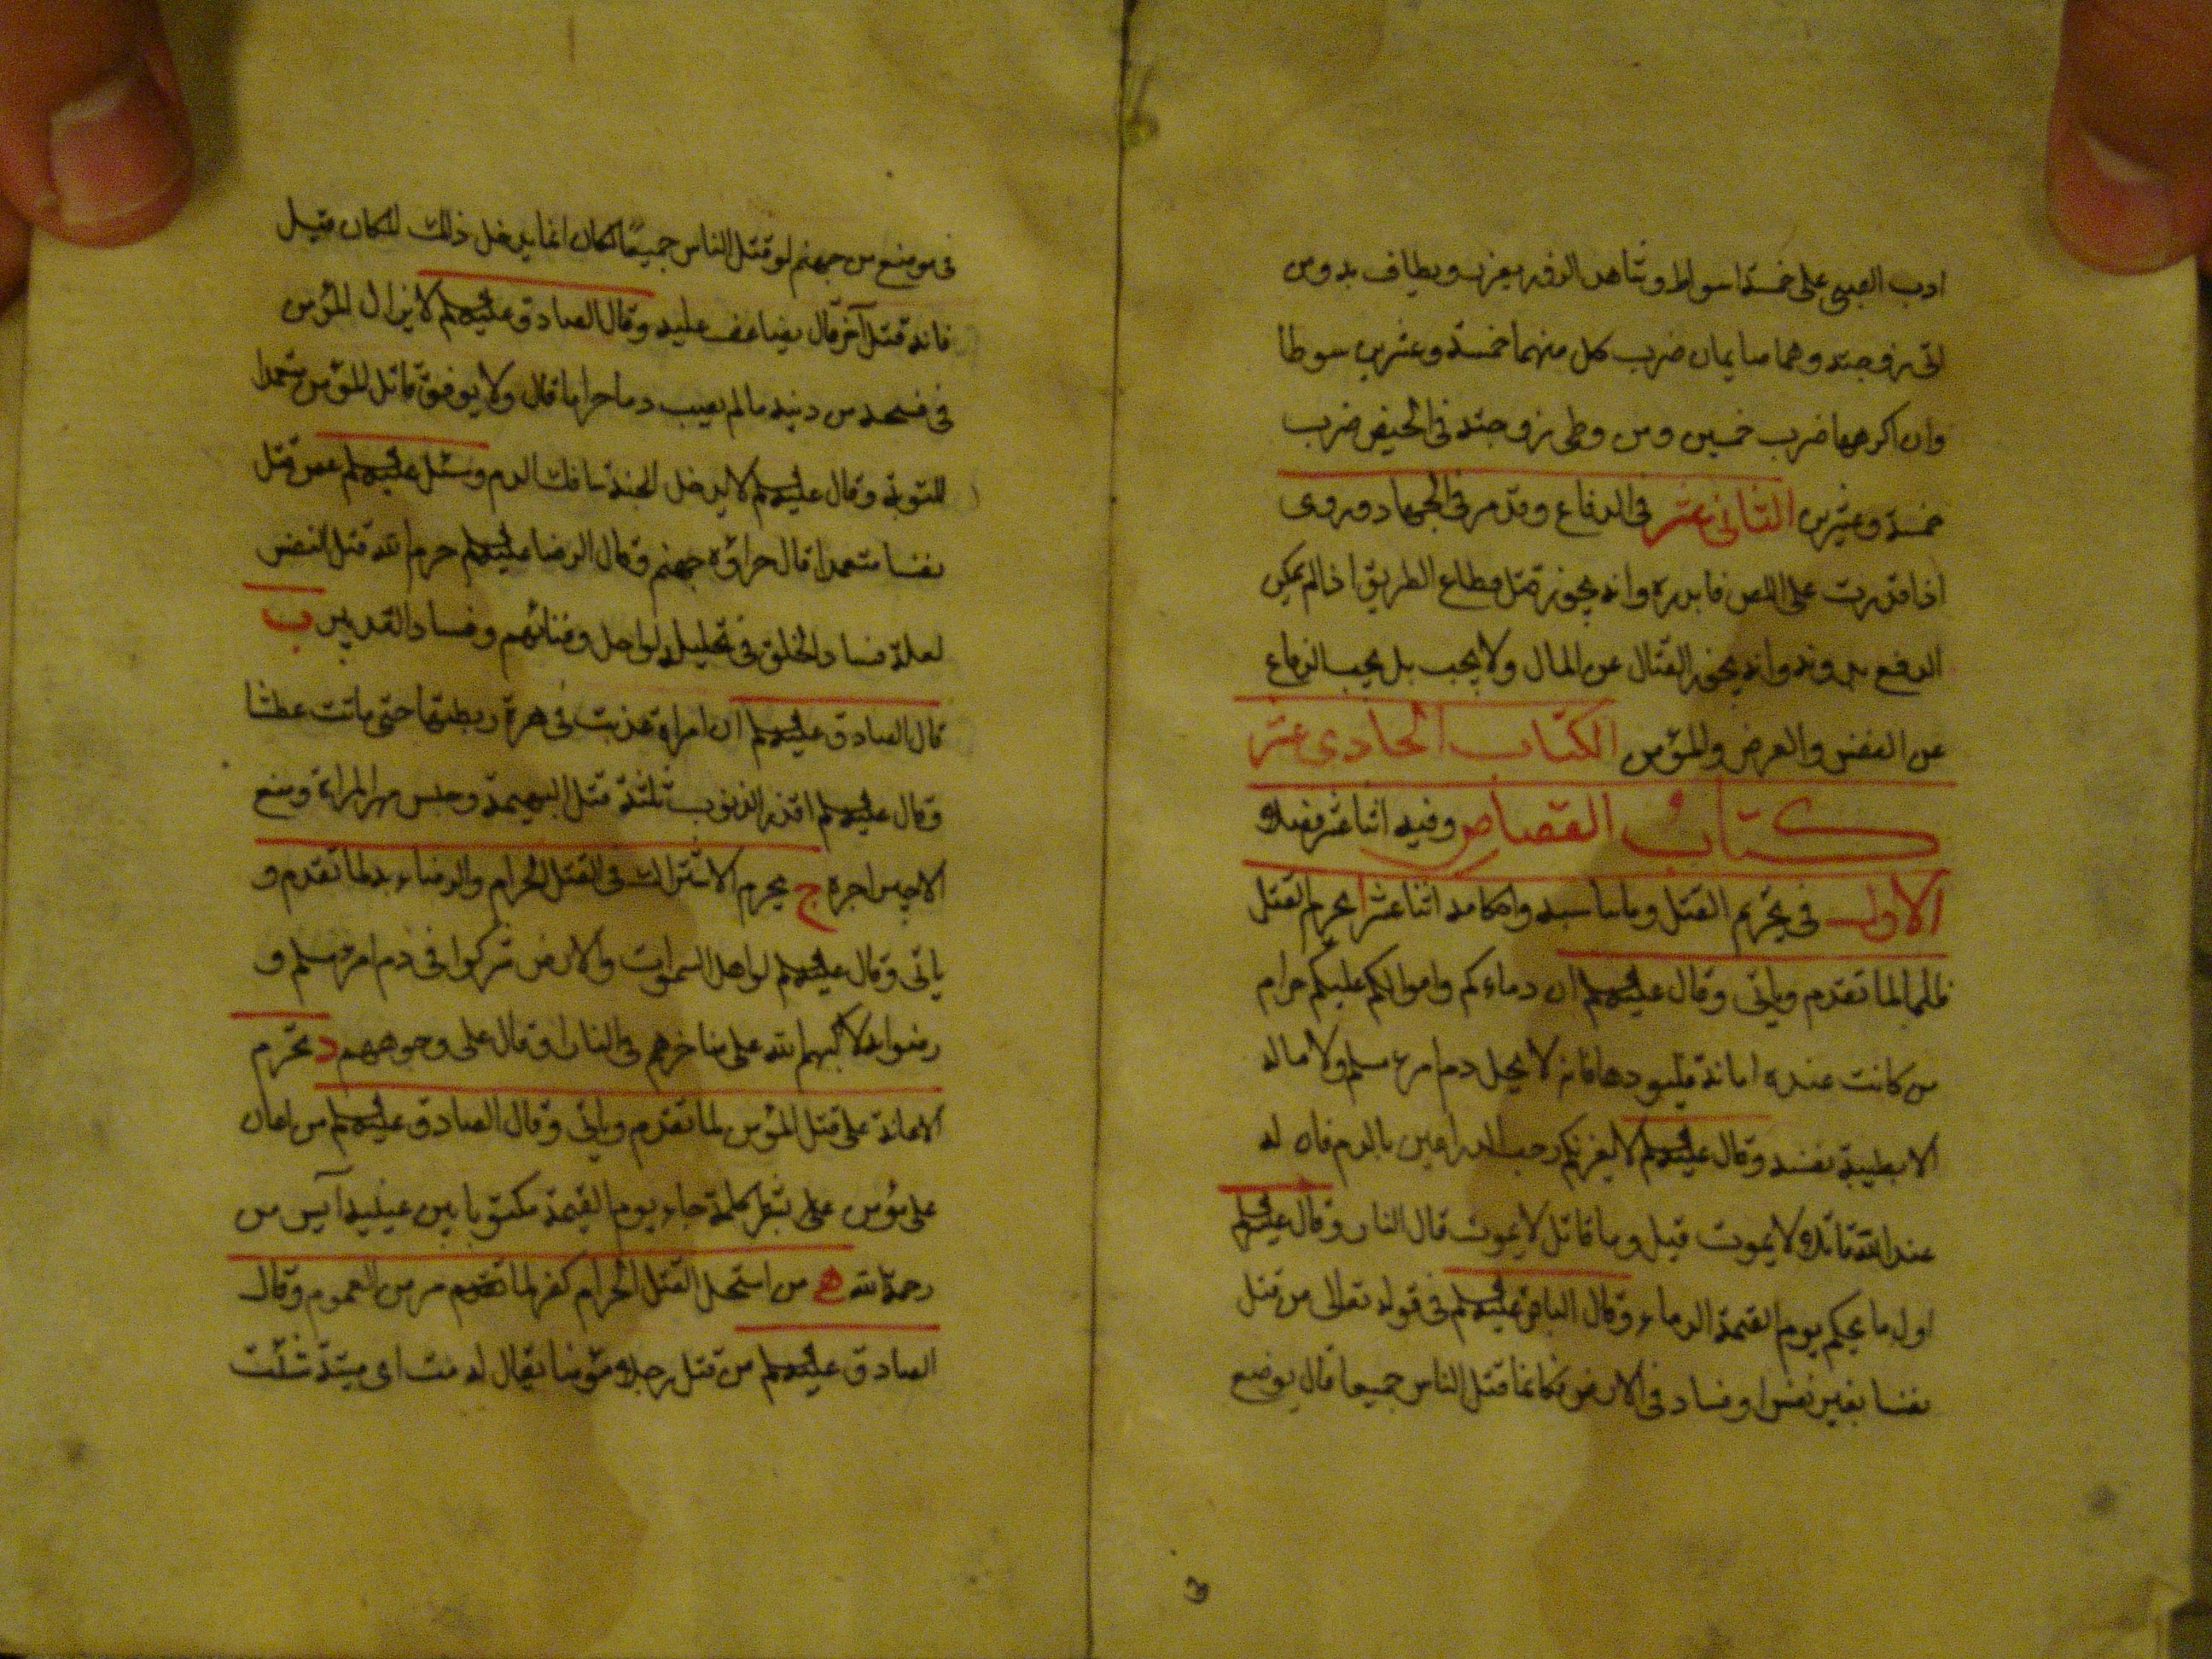 ادب الصبي على خمسة اسواط وشاهد الزور يعزر ويطاف به ومن
اتى زوجته وهما صايمان ضرب كل منهما خمسة وعشرين سوطا
وان اكرهها ضرب خمسين ومن وطى زوجته في الحيض ضرب
خمسة وعشرين الثاني عشر في الدفاع وقد مر في الجهاد وروى
اذا قدرت على اللص فابدره وانه يجوز قتل قطاع الطريق اذا لم يمكن
الدفع بدونه وانه يجوز القتال عن المال ولا يجب بل يجب الدفاع
عن النفس والعرض والمؤمن الكتاب الحادى عشر
كتاب القصاص وفيه اثنا عشر فصلا
الاول في تحريم القتل وما يناسبه واحكامه اثنا عشر ا يحرم القتل
ظلما لما تقدم وياتى وقال عليه‌السلم ان دماءكم واموالكم عليكم حرام
من كانت عنده امانة فليودها فانه لا يحل دم امرء مسلم ولا ماله
الا بطيبة نفسه وقال عليه‌السلم لا يغرنكم رحب الذراعين بالدم فان له
عند الله قاتلا لا يموت قيل وما قاتل لا يموت قال النار وقال عليه‌السلم
اول ما يحكم يوم القيمة الدماء وقال الباقر عليه‌السلم في قوله تعالى من قتل
نفسا بغير نفس او فساد في الارض فكانما قتل الناس جميعا قال يوضع
في موضع من جهنم لو قتل الناس جميعًا لكان انما يدخل ذلك المكان قيل
فانه قتل آخر قال يضاعف عليه وقال الصادق عليه‌السلم لا يزال المؤمن
في فسحة من دينه ما لم يصب دما حراما قال ولا يوفق قاتل المؤمن متعمدا
للتوبة وقال عليه‌السلم لا يدخل الجنة سافك الدم وسئل عليه‌السلم عمن قتل
نفسا متعمدا قال جزاؤه جهنم وقال الرضا عليه‌السلم حرم الله قتل النفس
لعلة فساد الخلق في تحليله لو احل وفنائهم وفساد التدبير ب
قال الصادق عليه‌السلم ان امراة عذبت في هرة ربطتها حتى ماتت عطشا
وقال عليه‌السلم اقذر الذنوب ثلثة قتل البهيمة وحبس مهر المراة ومنع
الاجير اجره ج يحرم الاشتراك في القتل الحرام والرضاء به لما تقدم و
ياتى وقال عليه‌السلم لو اهل السموات والارض شركوا في دم امرء مسلم و
رضوا به لاكبهم الله على مناخرهم في النار او قال على وجوههم د تحرم
الاعانة على قتل المؤمن لما تقدم وياتى وقال الصادق عليه‌السلم من اعان
على مؤمن على بشطر كلمة جاء يوم القيمة مكتوبا بين عينيه آيس من
رحمة الله ه من استحل القتل الحرام كفر لما مر من العموم وقال
الصادق عليه‌السلم من قتل رجلا مؤمنا يقال له مت اى ميتة شئت